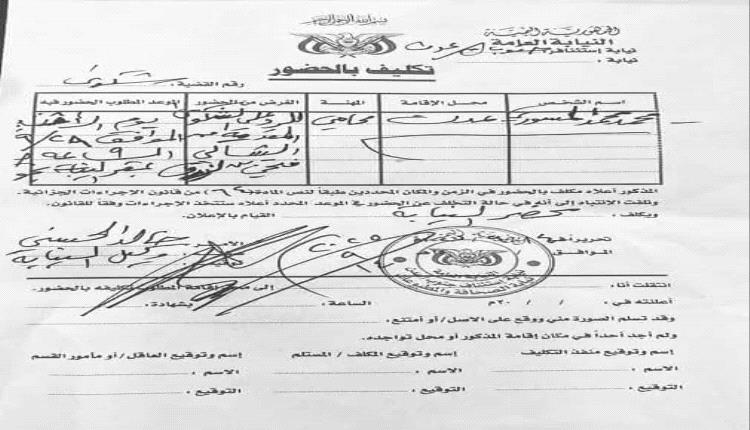 بسم الله الرحمن الرحيم
الجمهورية اليمنية
النيابة العامة
نيابة إستئناف جنوب عدن
نيابة :
تكليف بالحضور
رقم القضية : شكوى
إسم الشخص محل الإقامة المهنة الغرض من الحضور الموعد المطلوب الحضور فيه
محمد محمد المسوري عدن محامي للرد على الشكوى يوم الأحد
المقدمة من الموافق ٩/٢٨
الساعة ٩
فتحي بن لزرق بمقر النيابة
المذكور أعلاه مكلف بالحضور في الزمن والمكان المحددين طبقاً لنص المادة (٦٩) من قانون الإجراءات الجزائية.
ونلفت الانتباه إلى أنه في حالة التخلف عن الحضور في الموعد المحدد أعلاه ستتخذ الإجراءات وفقاً للقانون.
ويكلف : محضر النيابة القيام بالإعلان.
تحريراً في
الموافق
خالد الحسني
وكيل النيابة
انتقلت أنا : إلى محل إقامة المطلوب تكليفه بالحضور.
أعلنته في : / / ٢٠م الساعة : بشهادة :
وقد تسلم الصورة مني ووقع على الاصل/ أو أمتنع .
ولم أجد أحداً في مكان إقامة المذكور أو محل تواجده.
إسم وتوقيع منفذ التكليف إسم وتوقيع المكلف / المستلم إسم وتوقيع العاقل/ أو مأمور القسم
الاسم : الاسم : الاسم :
التوقيع : التوقيع : التوقيع :